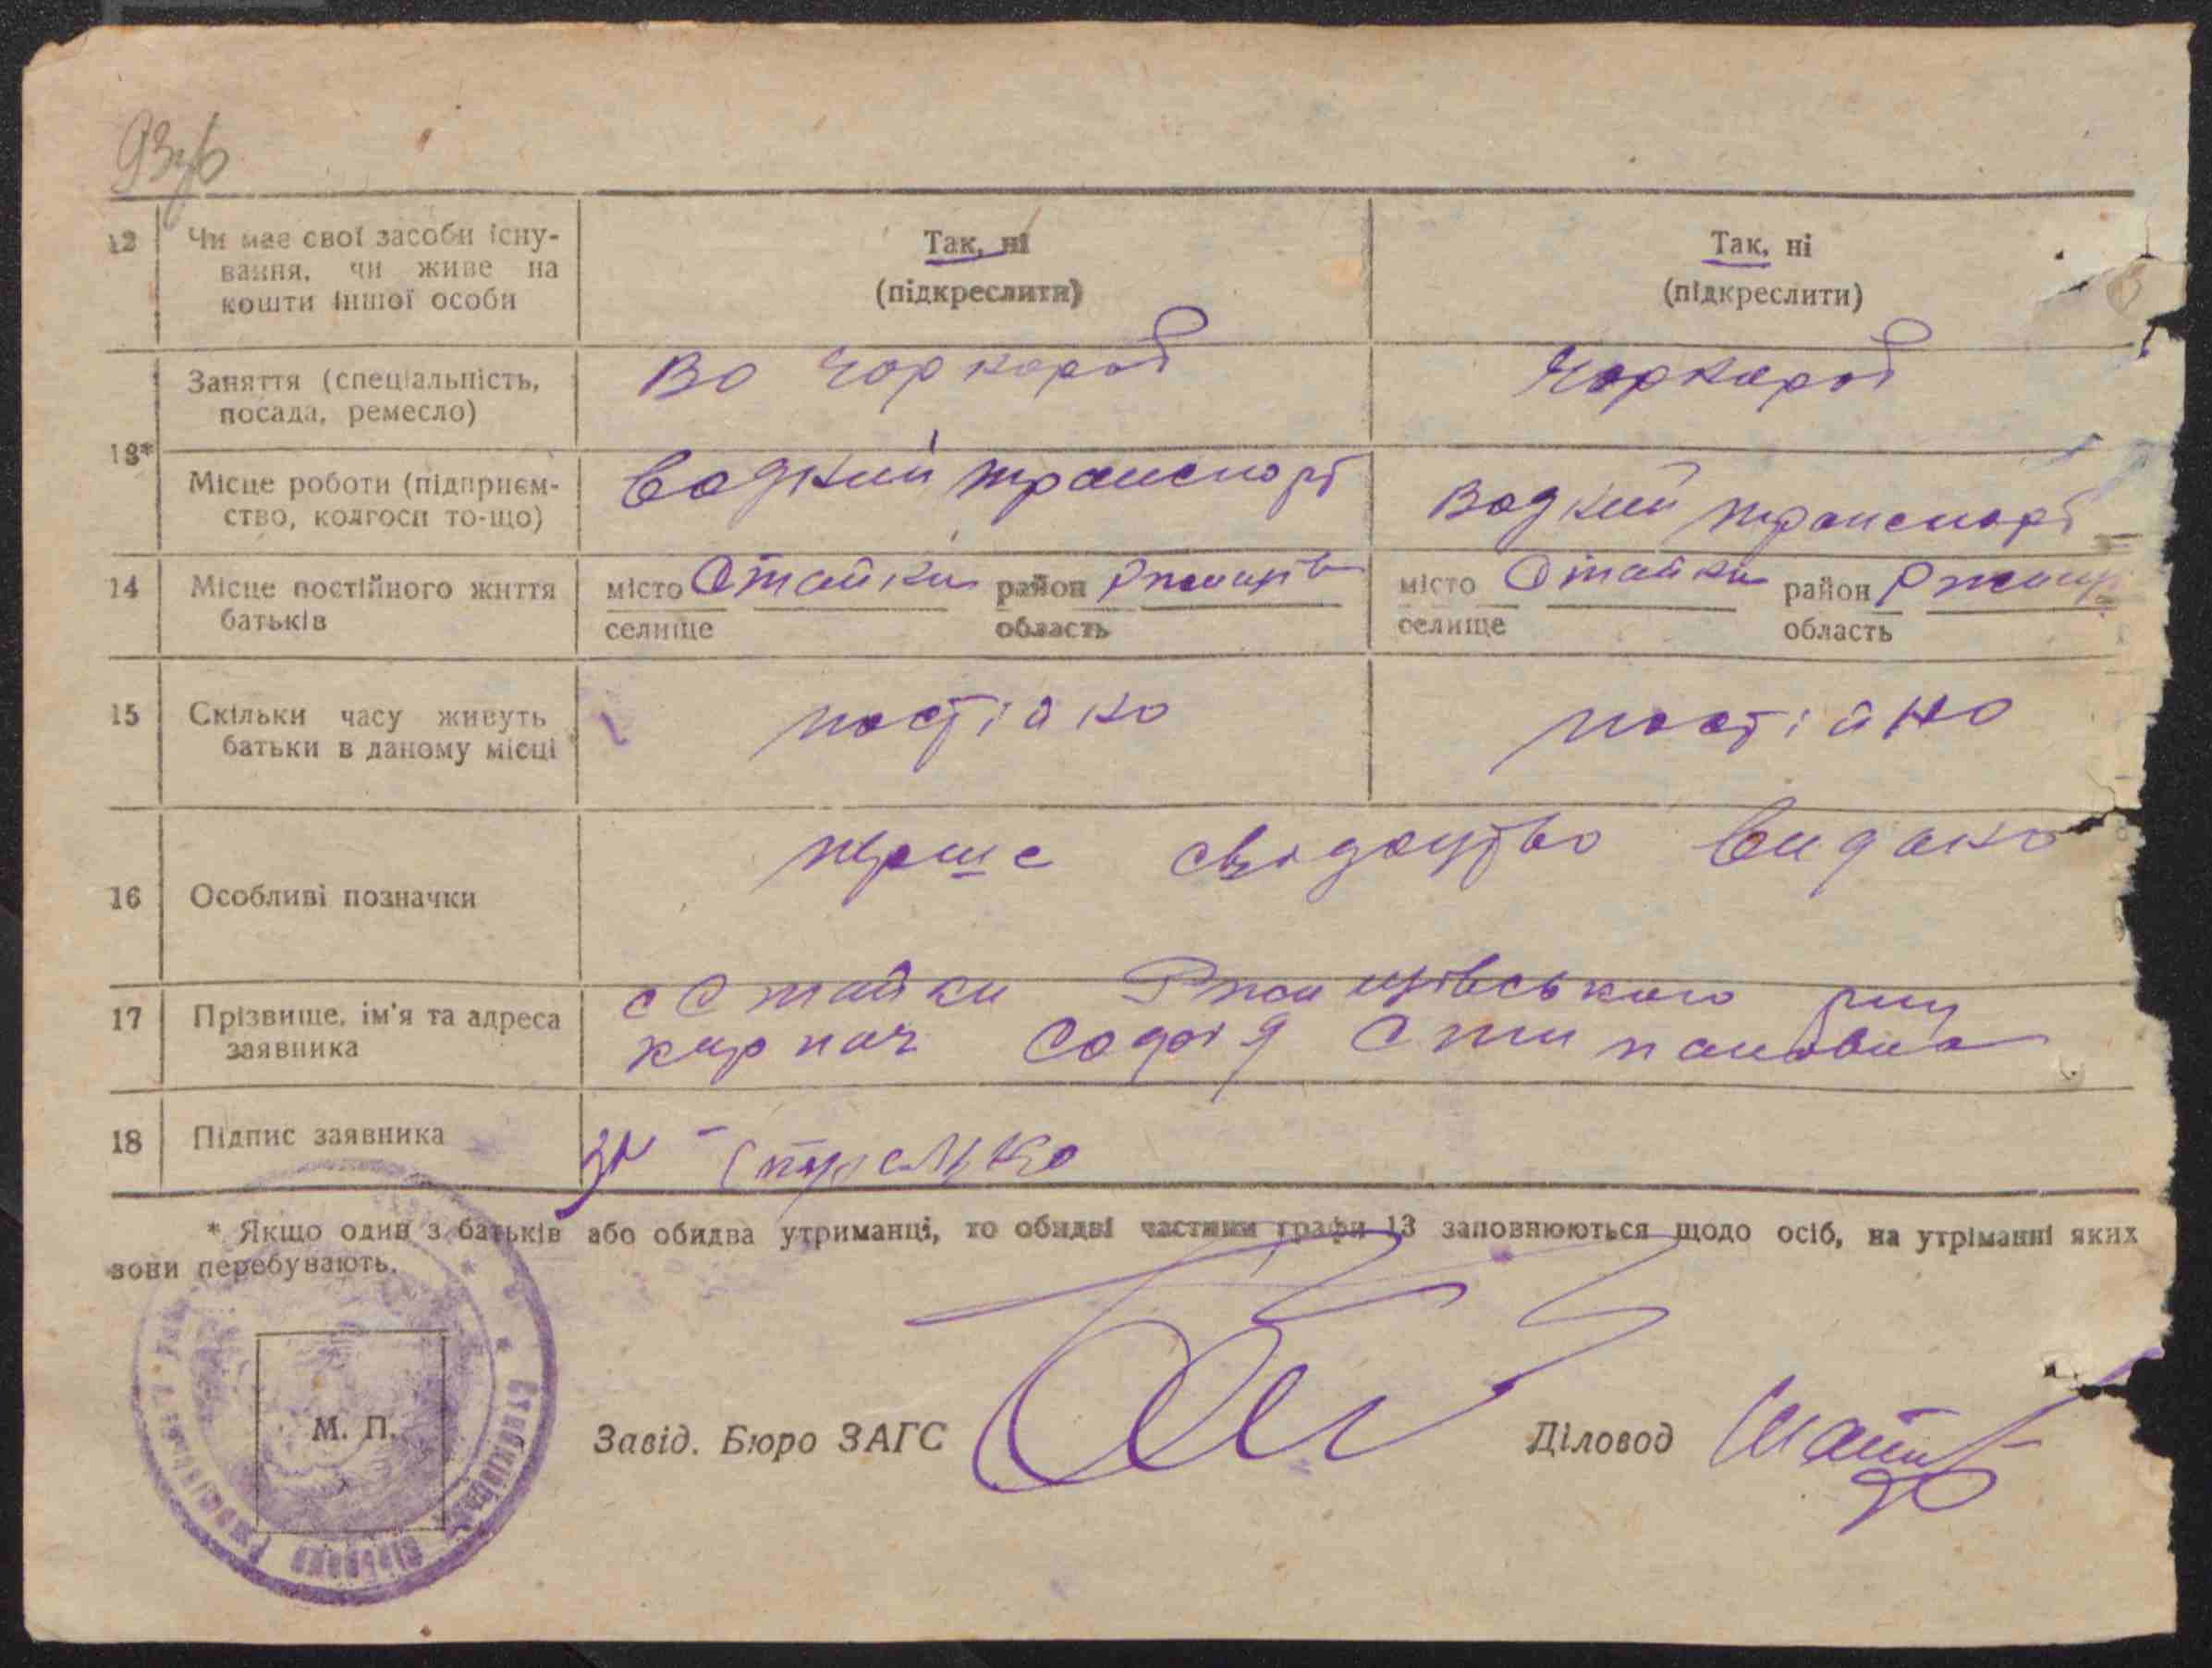 93зв
12 Чи має свої засоби існу-
вання, чи живе на
кошти іншої особи
Так, ні
(підкреслити)
Так, ні
(підкреслити)
13*
Заняття (спеціальність,
посада, ремесло)
во чоркороб
чоркороб
Місце роботи (підприєм-
ство, колгосп то-що)
водний транспорт
водний транспорт
14 Місце постійного життя
батьків
місто Стайки район Ржищів
селище область
місто Стайки район Ржищ
селище область
15 Скільки часу живуть
батьки в даному місці
постійно
постійно
16 Особливі позначки
перше свідоцтво видано
17 Прізвище, ім'я та адреса
заявника
с Стайки Ржищівського р-ну
Кирпач Софія Стипановна
18 Підпис заявника
за
* Якщо один з батьків або обидва утриманці, то обидві частини графи 13 заповнюються щодо осіб, на утріманні яких
вони перебувають.
М. П.
Завід. Бюро ЗАГС
Діловод